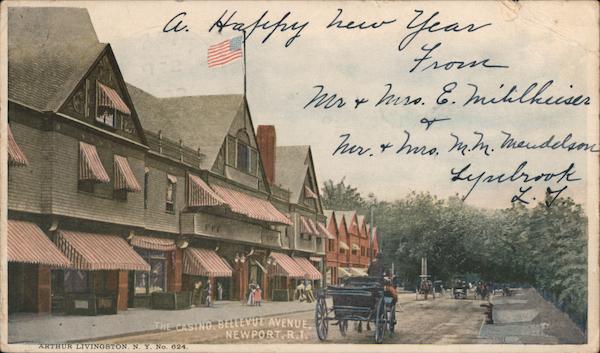 A. Happy New Year
From
Mr & Mrs. E. Milhheiser
&
Mr. & Mrs. M. M. Mendelson
Lynbrook
L. I
THE CASINO, BELLEVUE AVENUE.
NEWPORT, R.I.
ARTHUR LIVINGSTON, N. Y. No. 624.